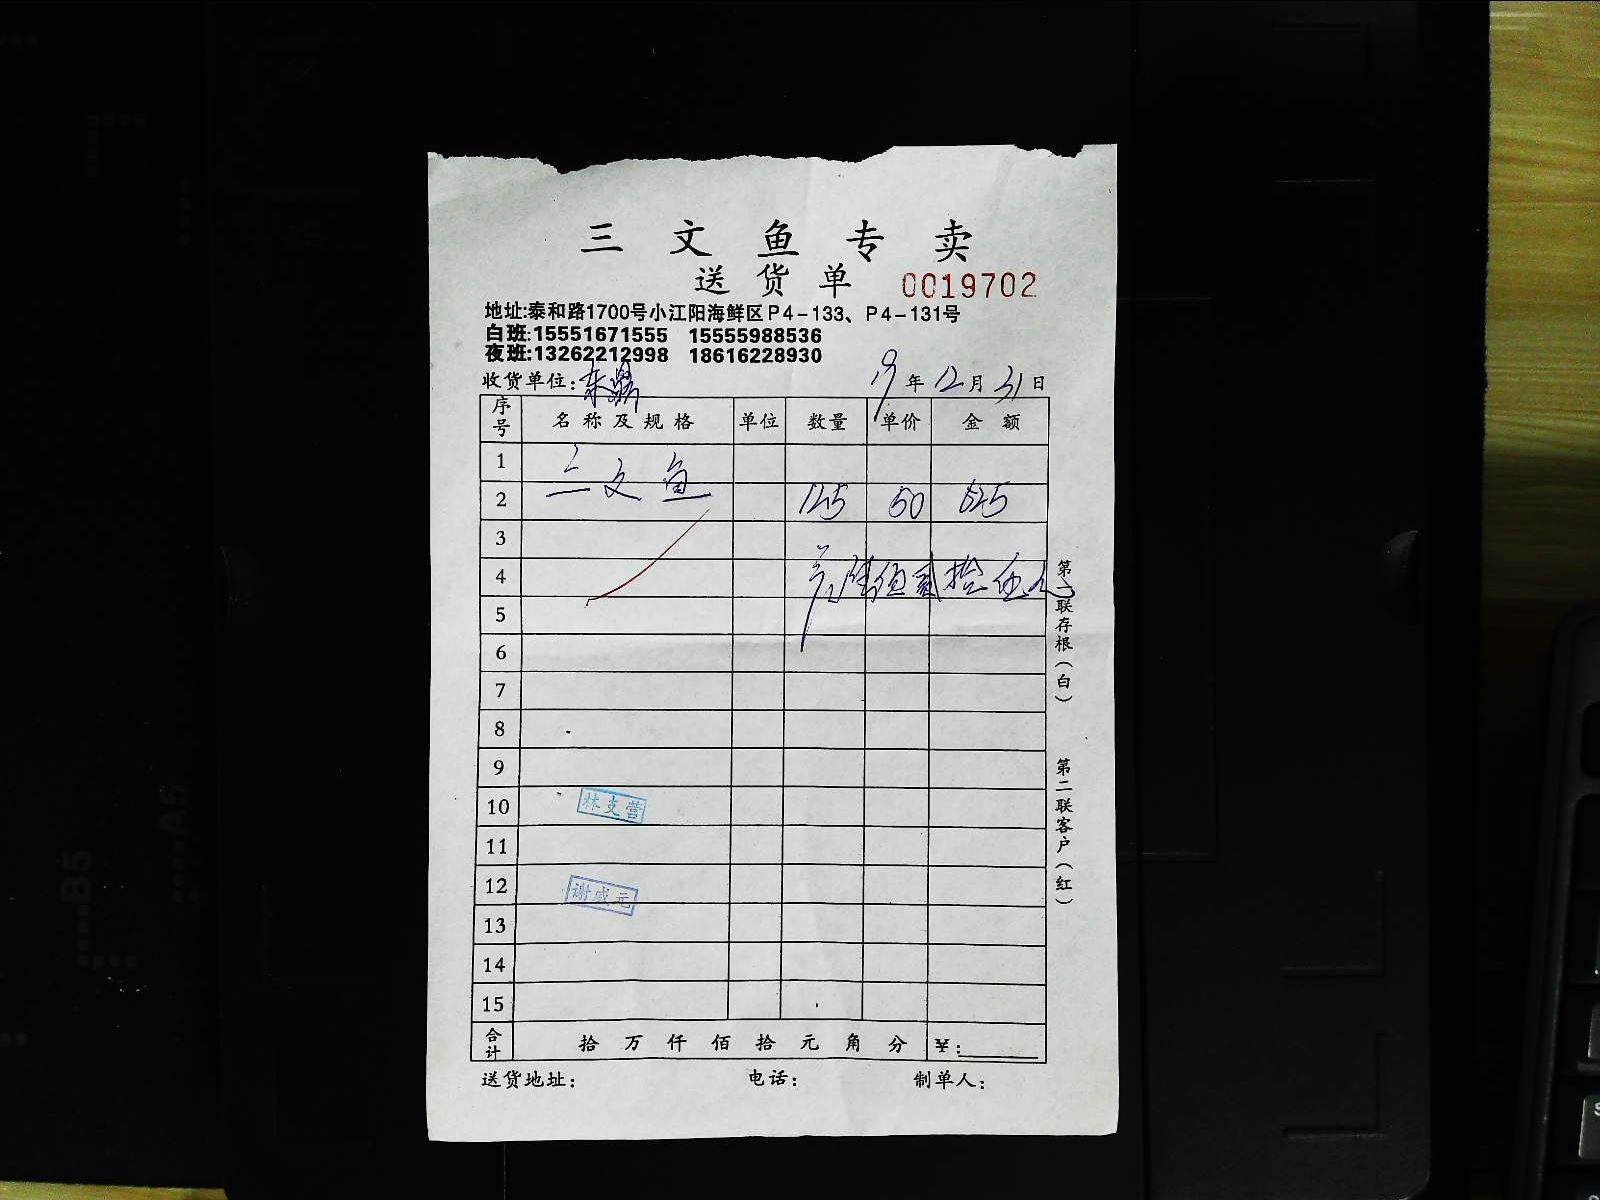 三文鱼专卖
送货单 0019702
地址:泰和路1700号小江阳海鲜区P4-133、P4-131号
白班:15551671555 15555988536
夜班:13262212998 18616228930
收货单位:东鼎 19年12月31日
序号 名称及规格 单位 数量 单价 金额
1
2 三文鱼 125 50 625
3
4 陆佰贰拾伍元
5
6
7
8
9
10 林支营
11
12 谢成元
13
14
15
合计 拾万仟佰拾元角分 ¥:
送货地址: 电话: 制单人:
第一联存根(白)
第二联客户(红)
B5
A5